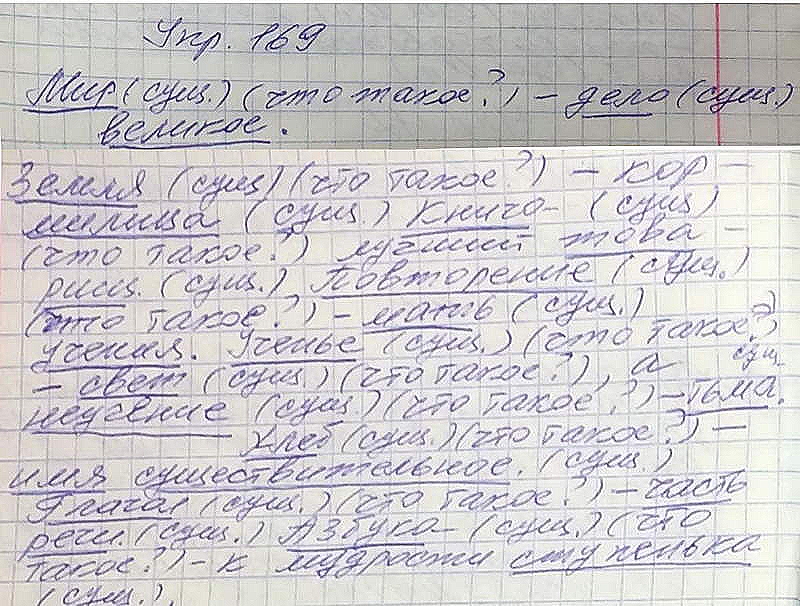 Упр. 169
Мир (сущ.) (что такое?) – дело (сущ.)
великое.
Земля (сущ) (что такое?) – кор –
милица (сущ.) Книга – (сущ)
(что такое?) лучший това –
рищ. (сущ.) Повторение (сущ.)
(что такое?) – мать (сущ.)
учения. Ученье (сущ.) (что такое?)
– свет (сущ.) (что такое?), а сущ.
неученье (сущ.) (что такое?) – тьма.
Хлеб (сущ.) (что такое?) –
имя существительное. (сущ.)
Глагол (сущ.) (что такое?) – часть
речи. (сущ.) Азбука – (сущ.) (что
такое?) – к мудрости ступенька
(сущ.).